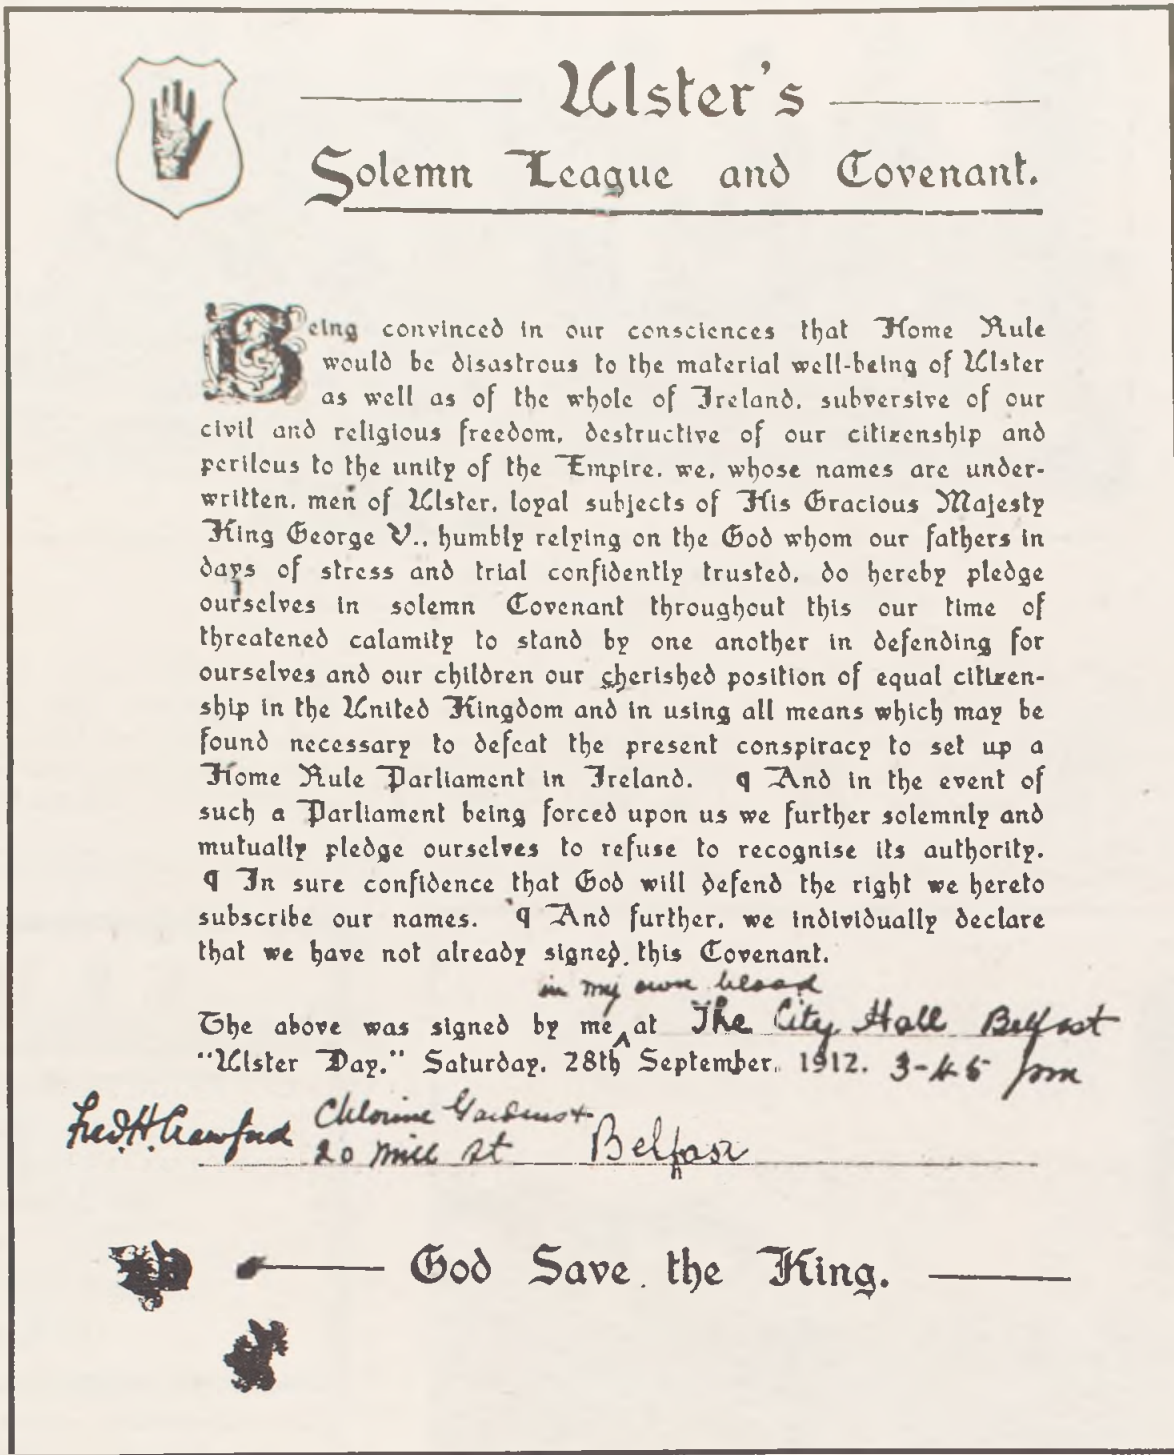 Ulster's
Solemn League and Covenant.
Being convinced in our consciences that Home Rule
would be disastrous to the material well-being of Ulster
as well as of the whole of Ireland, subversive of our
civil and religious freedom, destructive of our citizenship and
perilous to the unity of the Empire, we, whose names are under-
written, men of Ulster, loyal subjects of His Gracious Majesty
King George V., humbly relying on the God whom our fathers in
days of stress and trial confidently trusted, do hereby pledge
ourselves in solemn Covenant throughout this our time of
threatened calamity to stand by one another in defending for
ourselves and our children our cherished position of equal citizen-
ship in the United Kingdom and in using all means which may be
found necessary to defeat the present conspiracy to set up a
Home Rule Parliament in Ireland. ¶ And in the event of
such a Parliament being forced upon us we further solemnly and
mutually pledge ourselves to refuse to recognise its authority.
¶ In sure confidence that God will defend the right we hereto
subscribe our names. ¶ And further, we individually declare
that we have not already signed this Covenant.
in my own blood
The above was signed by me at The City Hall Belfast
"Ulster Day." Saturday, 28th September, 1912. 3-45 pm
Chlorine Gardens +
Fred. H. Crawford 20 Mill St Belfast
God Save the King.